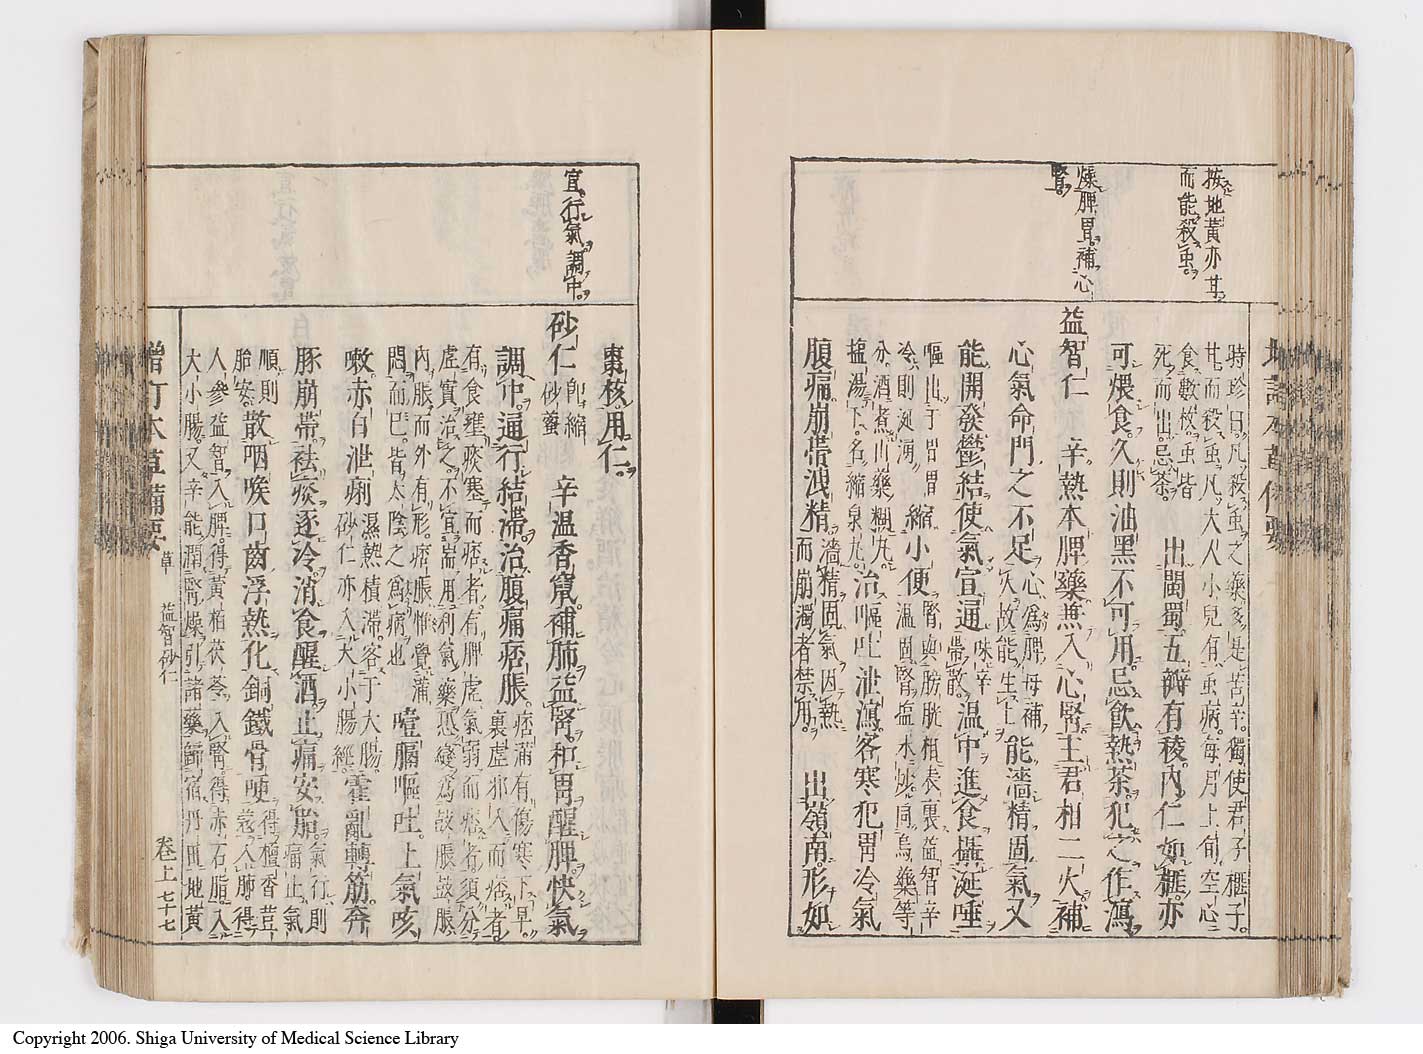 按地黄亦甘
而能殺虫
燥脾胃補心
腎
時珍曰凡殺虫之藥多是苦辛獨使君子榧子
甘而殺虫凡大人小兒有虫病每月上旬空心
食數枚虫皆
死而出忌茶
出閩蜀五瓣有稜内仁如榧亦
可煨食久則油黒不可用忌飲熱茶犯之作瀉
益智仁 辛熱本脾藥兼入心腎主君相二火補
心氣命門之不足心為脾母補
火故能生土能濇精固氣又
能開發鬱結使氣宣通味辛
能散温中進食攝涎唾
嘔出于胃胃
冷則涎湧縮小便腎與膀胱相表裏益智辛
温固腎塩水炒同烏藥等
分酒煮山藥糊丸
塩湯下名縮泉丸治嘔吐泄瀉客寒犯胃冷氣
腹痛崩帶洩精濇精固氣因熱
而崩濁者禁用出嶺南形如
宜行氣調中
棗核用仁
砂仁即縮
砂蔤 辛温香竄補肺益腎和胃醒脾快氣
調中通行結滯治腹痛痞脹痞滿有傷寒下早
裏虚邪入而痞者
有食壅痰塞而痞者有脾虚氣弱而痞者須分
虚實治之不宜耑用利氣藥恐變為鼓脹鼓脹
内脹而外有形痞脹惟覺滿
悶而巳皆太陰之為病也噎膈嘔吐上氣咳
嗽赤白泄痢濕熱積滯客于大腸
砂仁亦入大小腸經霍亂轉筋奔
豚崩帶祛痰逐冷消食醒酒止痛安胎氣行則
痛止氣
順則
胎安散咽喉口齒浮熱化銅鐵骨哽得檀香荳
蔲入肺得
人參益智入脾得黄栢茯苓入腎得赤石脂入
大小腸又辛能潤腎燥引諸藥歸宿丹田地黄
増訂本草備要
草
益智砂仁
卷上七十七
Copyright 2006. Shiga University of Medical Science Library